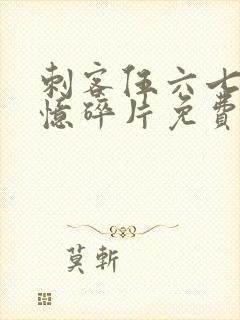 刺客伍六七
憶碎片免費
莫斬